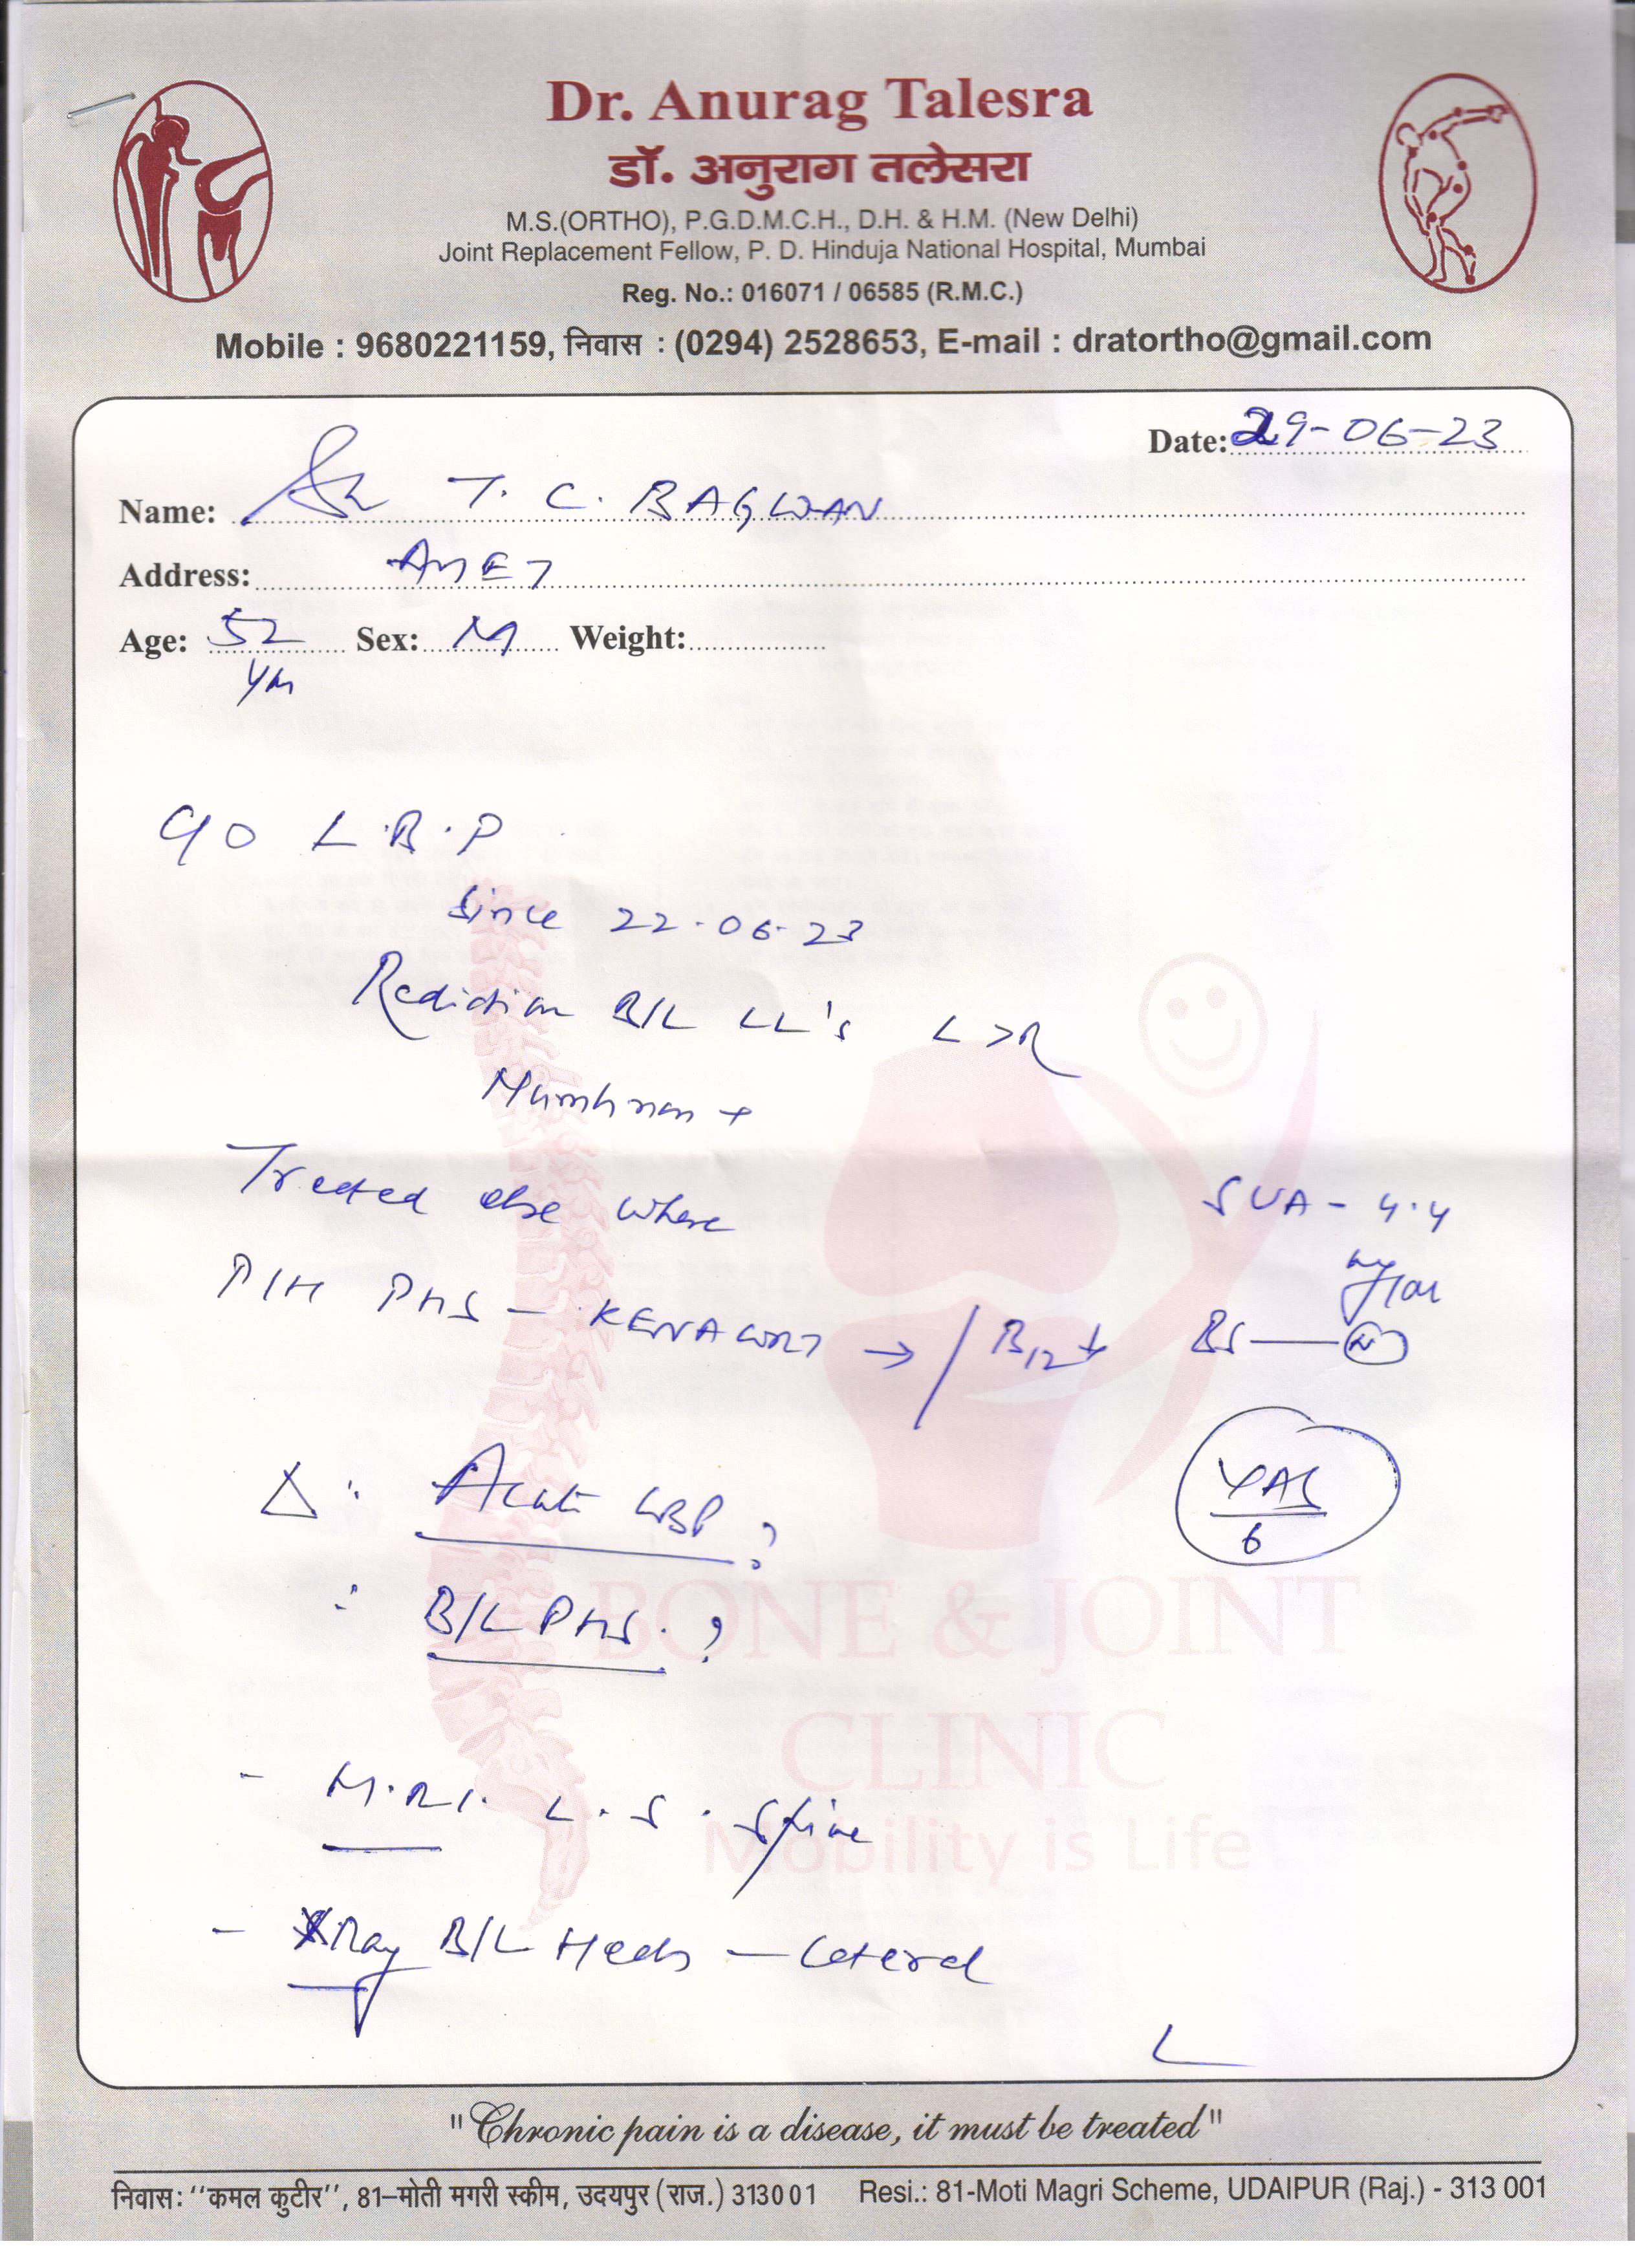 Dr. Anurag Talesra
डॉ. अनुराग तलेसरा
M.S.(ORTHO), P.G.D.M.C.H., D.H. & H.M. (New Delhi)
Joint Replacement Fellow, P. D. Hinduja National Hospital, Mumbai
Reg. No.: 016071 / 06585 (R.M.C.)
Mobile : 9680221159, निवास : (0294) 2528653, E-mail : dratortho@gmail.com
Date: 29-06-23
Name: T. C. BAGWAN
Address: AMET
Age: 52 Sex: M Weight:
C/O L.B.P
Since 22-06-23
Radiation B/L LL's L>R
Numbness +
Treated else where
SUA - 4.4
P/H PHS - KENACORT → / B12 ↓ BS — N
VAS
6
Δ : Acute LBP ?
: B/L PHS. ?
BONE & JOINT
CLINIC
- M.R.I. L.S. Spine
Mobility is Life
- XRay B/L Heels - Lateral
"Chronic pain is a disease, it must be treated"
निवास: ‘‘कमल कुटीर’’, 81–मोती मगरी स्कीम, उदयपुर (राज.) 313001 Resi.: 81-Moti Magri Scheme, UDAIPUR (Raj.) - 313 001